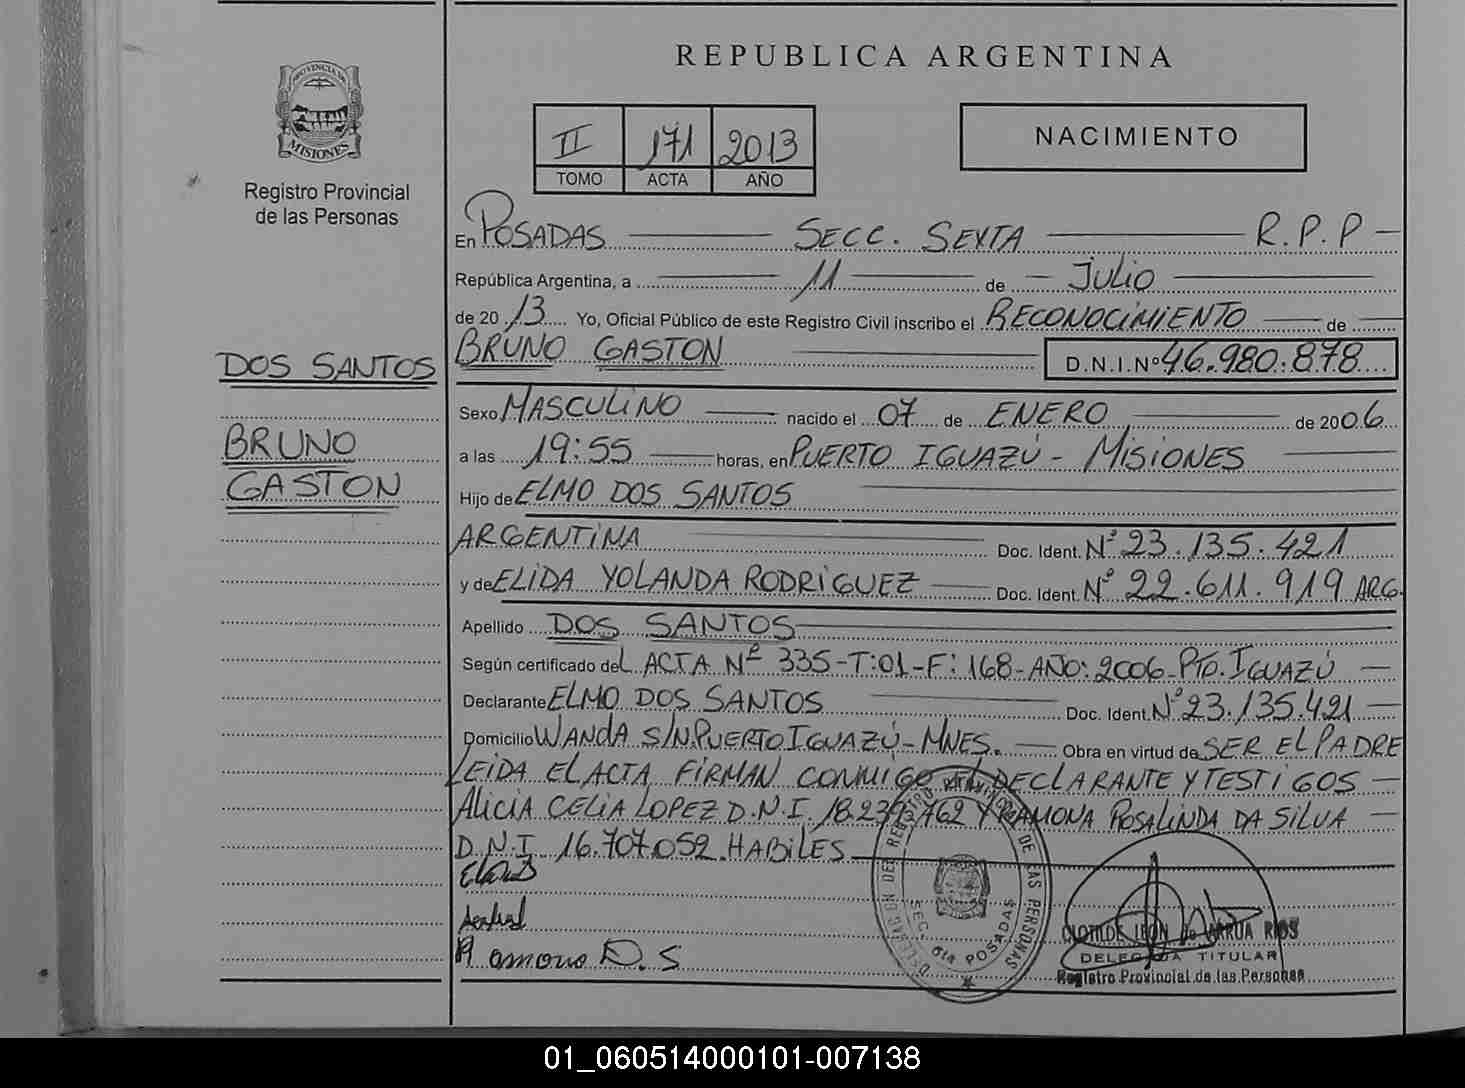 REPUBLICA ARGENTINA
PROVINCIA DE
MISIONES
Registro Provincial
de las Personas
II 171 2013
TOMO ACTA AÑO
NACIMIENTO
En POSADAS SECC. SEXTA R.P.P
República Argentina, a 11 de JULIO
de 20 13 Yo, Oficial Público de este Registro Civil inscribo el RECONOCIMIENTO de
BRUNO GASTON D.N.I.Nº 46.980.878
DOS SANTOS
BRUNO
GASTON
Sexo MASCULINO nacido el 07 de ENERO de 2006
a las 19:55 horas, en PUERTO IGUAZÚ - MISIONES
Hijo de ELMO DOS SANTOS
ARGENTINA Doc. Ident. Nº 23.135.421
y de ELIDA YOLANDA RODRIGUEZ Doc. Ident. Nº 22.611.919 ARG.
Apellido DOS SANTOS
Según certificado del ACTA Nº 335-T:01-F:168-AÑO:2006-PTO.IGUAZÚ
Declarante ELMO DOS SANTOS Doc. Ident. Nº 23.135.421
Domicilio WANDA S/N.PUERTO IGUAZÚ-MNES. Obra en virtud de SER EL PADRE
LEIDA EL ACTA FIRMAN CONMIGO EL DECLARANTE Y TESTIGOS
ALICIA CELIA LOPEZ D.N.I. Y RAMONA ROSALINDA DA SILVA
D.N.I 16.707.052. HABILES
Ramona D.S
DELEGACION DEL REGISTRO PROVINCIAL DE LAS PERSONAS
SEC. 6ta POSADAS
CLOTILDE LEON de RIOS
DELEGADA TITULAR
Registro Provincial de las Personas
01_060514000101-007138